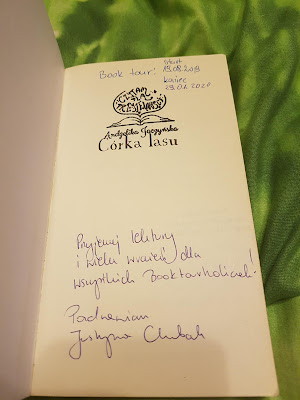 Book tour:
start
19.08.2019
koniec
29.01.2020
CZYTAM
Andżelika Jaczyńska
Córka lasu
Przyjemnej lektury
i wielu wrażeń dla
wszystkich Booktourholiczek!
Pozdrawiam
Justyna Chubak